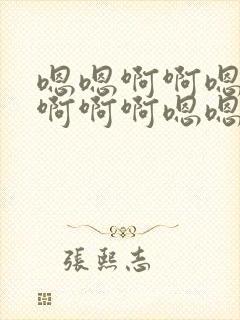 嗯嗯啊啊嗯
啊啊啊嗯嗯
張熙志